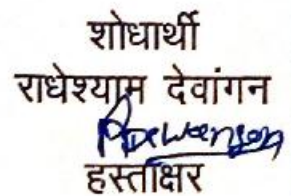 शोधार्थी
राधेश्याम देवांगन
हस्ताक्षर